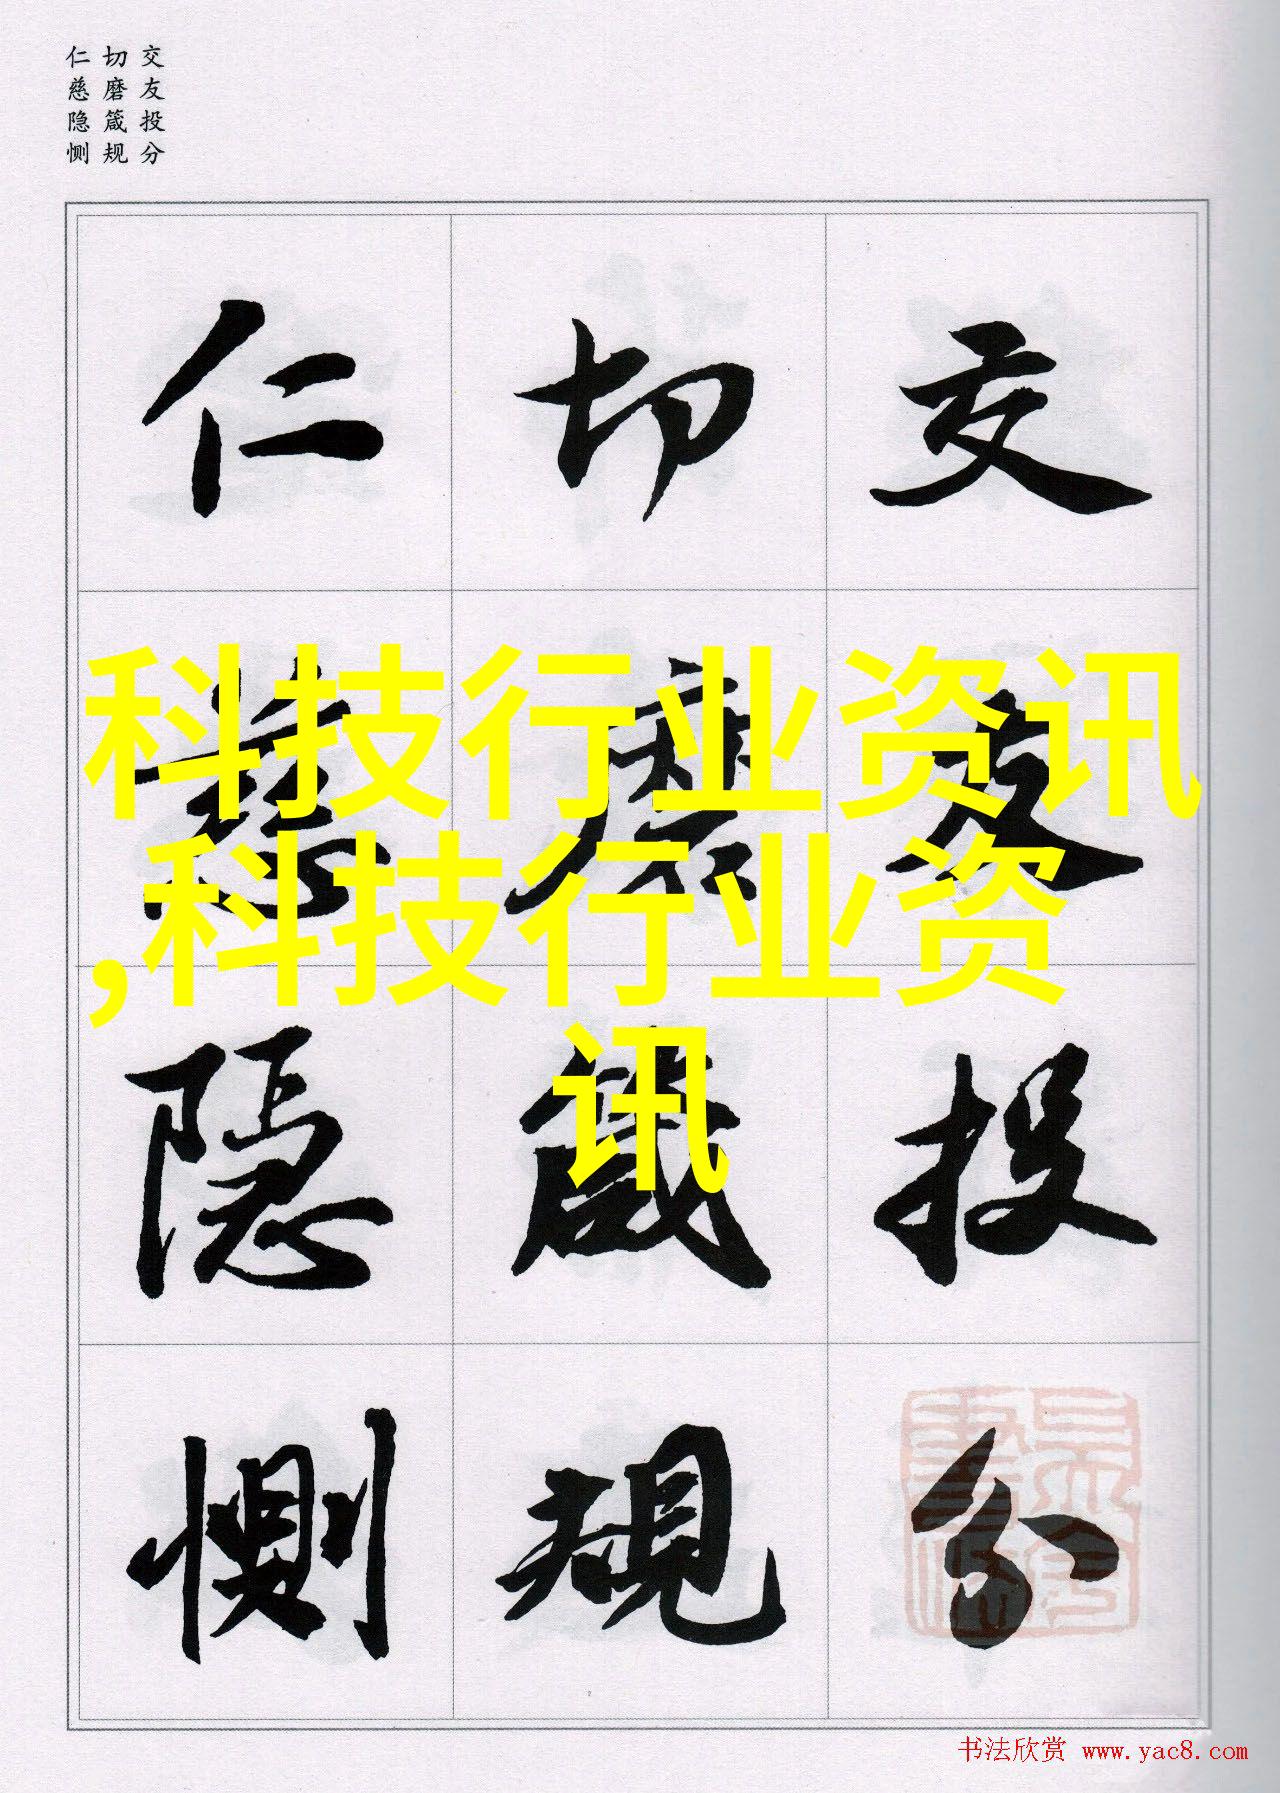 交友投分
切磨箴规
仁慈隐恻
交友投分
切磨箴规
仁慈隐恻
科技行业资讯
,科技行业资
讯
书法欣赏 www.yac8.com